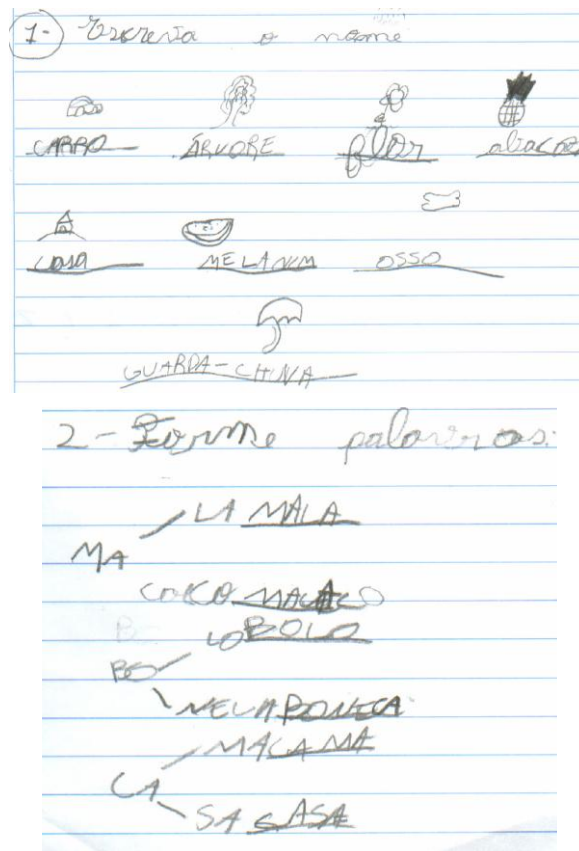 1- Escreva o nome
CARRO ÁRVORE flor abacaxi
casa MELANCIA OSSO
GUARDA-CHUVA
2- Forme palavras:
LA MALA
MA
CACO MACACO
LO BOLO
BO
NECA BONECA
MA CAMA
CA
SA CASA